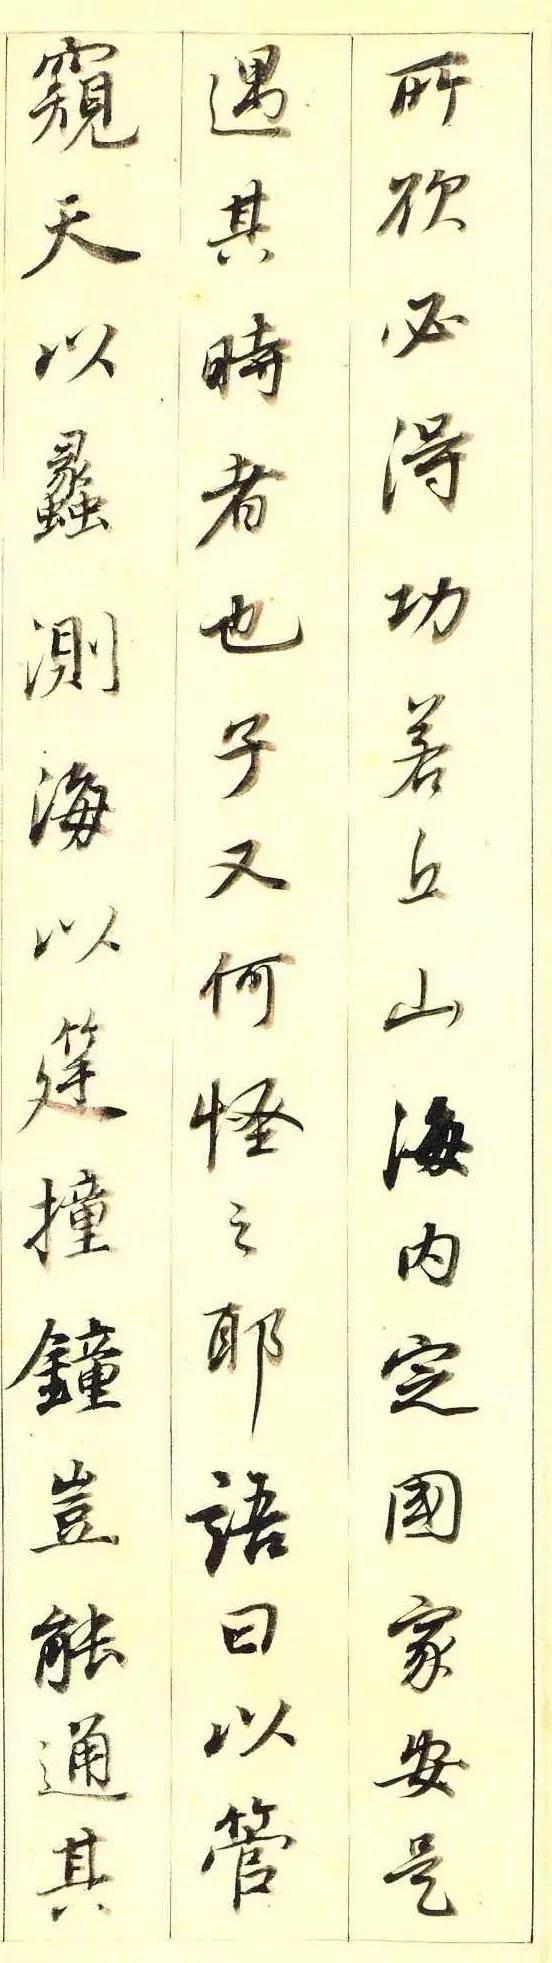 所欲必得功若丘山海内定國家安是
遇其時者也子又何怪之耶語曰以管
窺天以蠡測海以筳撞鐘豈能通其